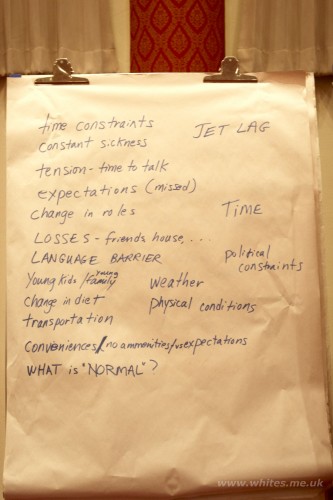 time constraints
JET LAG
constant sickness
tension - time to talk
expectations (missed)
change in roles
TIME
LOSSES - friends, house, ...
LANGUAGE BARRIER
political constraints
Young kids / young family
weather
change in diet
physical conditions
transportation
conveniences / no ammenities / vs expectations
WHAT is "NORMAL"?
www.whites.me.uk